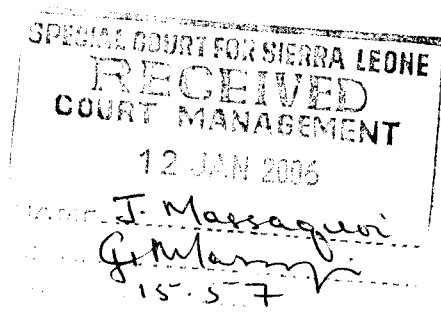 SPECIAL COURT FOR SIERRA LEONE
RECEIVED
COURT MANAGEMENT
12 JAN 2006
NAME J. Massaquoi
15.57